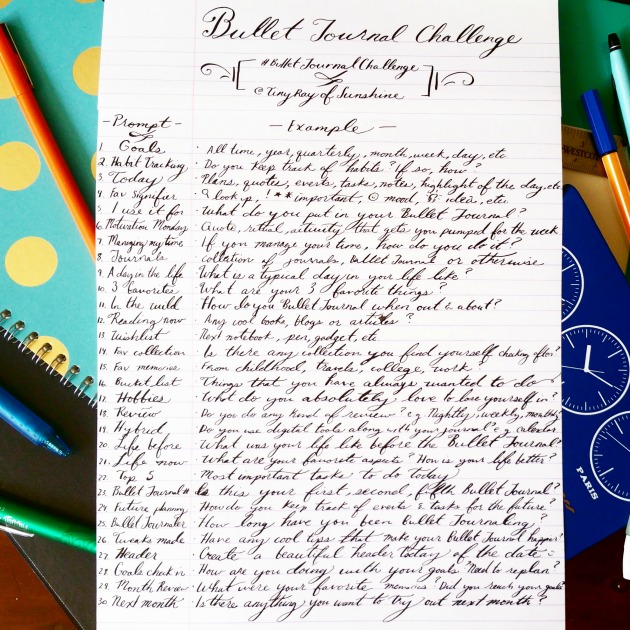 Bullet Journal Challenge
#BulletJournalChallenge
@TinyRayofSunshine
- Prompt - - Example -
1. Goals · All time, year, quarterly, month, week, day, etc
2. Habit Tracking · Do you keep track of habits? If so, how?
3. Today · Plans, quotes, events, tasks, notes, highlight of the day, etc
4. Fav Signifier look up, ! ** important, mood, idea, etc.
5. I use it for · What do you put in your Bullet Journal?
6. Motivation Monday · Quote, ritual, activity that gets you pumped for the week
7. Managing my time · If you manage your time, how do you do it?
8. Journals · collection of journals, Bullet Journal or otherwise
9. A day in the life · What is a typical day in your life like?
10. 3 favorites · What are your 3 favorite things?
11. In the wild · How do you Bullet Journal when out & about?
12. Reading now · Any cool books, blogs or articles?
13. Wishlist · Next notebook, pen, gadget, etc
14. Fav collection · Is there any collection you find yourself checking often?
15. Fav memories · From childhood, travels, college, work
16. Bucket list · Things that you have always wanted to do
17. Hobbies · What do you absolutely love to lose yourself in?
18. Review · Do you do any kind of review? e.g Nightly, weekly, monthly
19. Hybrid · Do you use digital tools along with your journal? e.g. calendar
20. Life before · What was your life like before the Bullet Journal?
21. Life now · What are your favorite aspects? How is your life better?
22. Top 5 · Most important tasks to do today
23. Bullet Journal # · Is this your first, second, fifth Bullet Journal?
24. Future planning · How do you keep track of events & tasks for the future?
25. Bullet Journaler · How long have you been Bullet Journaling
26. Tweaks made · Have any cool tips that make your Bullet Journal happier?
27. Header · Create a beautiful header today of the date
28. Goals check in · How are you doing with your goals? Need to replan?
29. Month Review · What were your favorite memories? Did you reach your goals?
30. Next month · Is there anything you want to try out next month?
WESTCOTT
PARIS